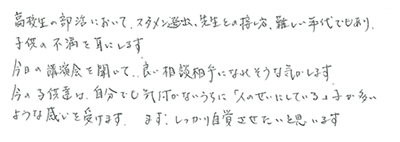 高校生の部活において、スタメン選出、先生との接し方、難しい年代でもあり、
子供の不満を耳にします。
今日の講演会を聞いて、良い相談相手になれそうな気がします。
今の子供達は、自分でも気付かないうちに「人のせいにしている」子が多い
ような感じを受けます。まず、しっかり自覚させたいと思います